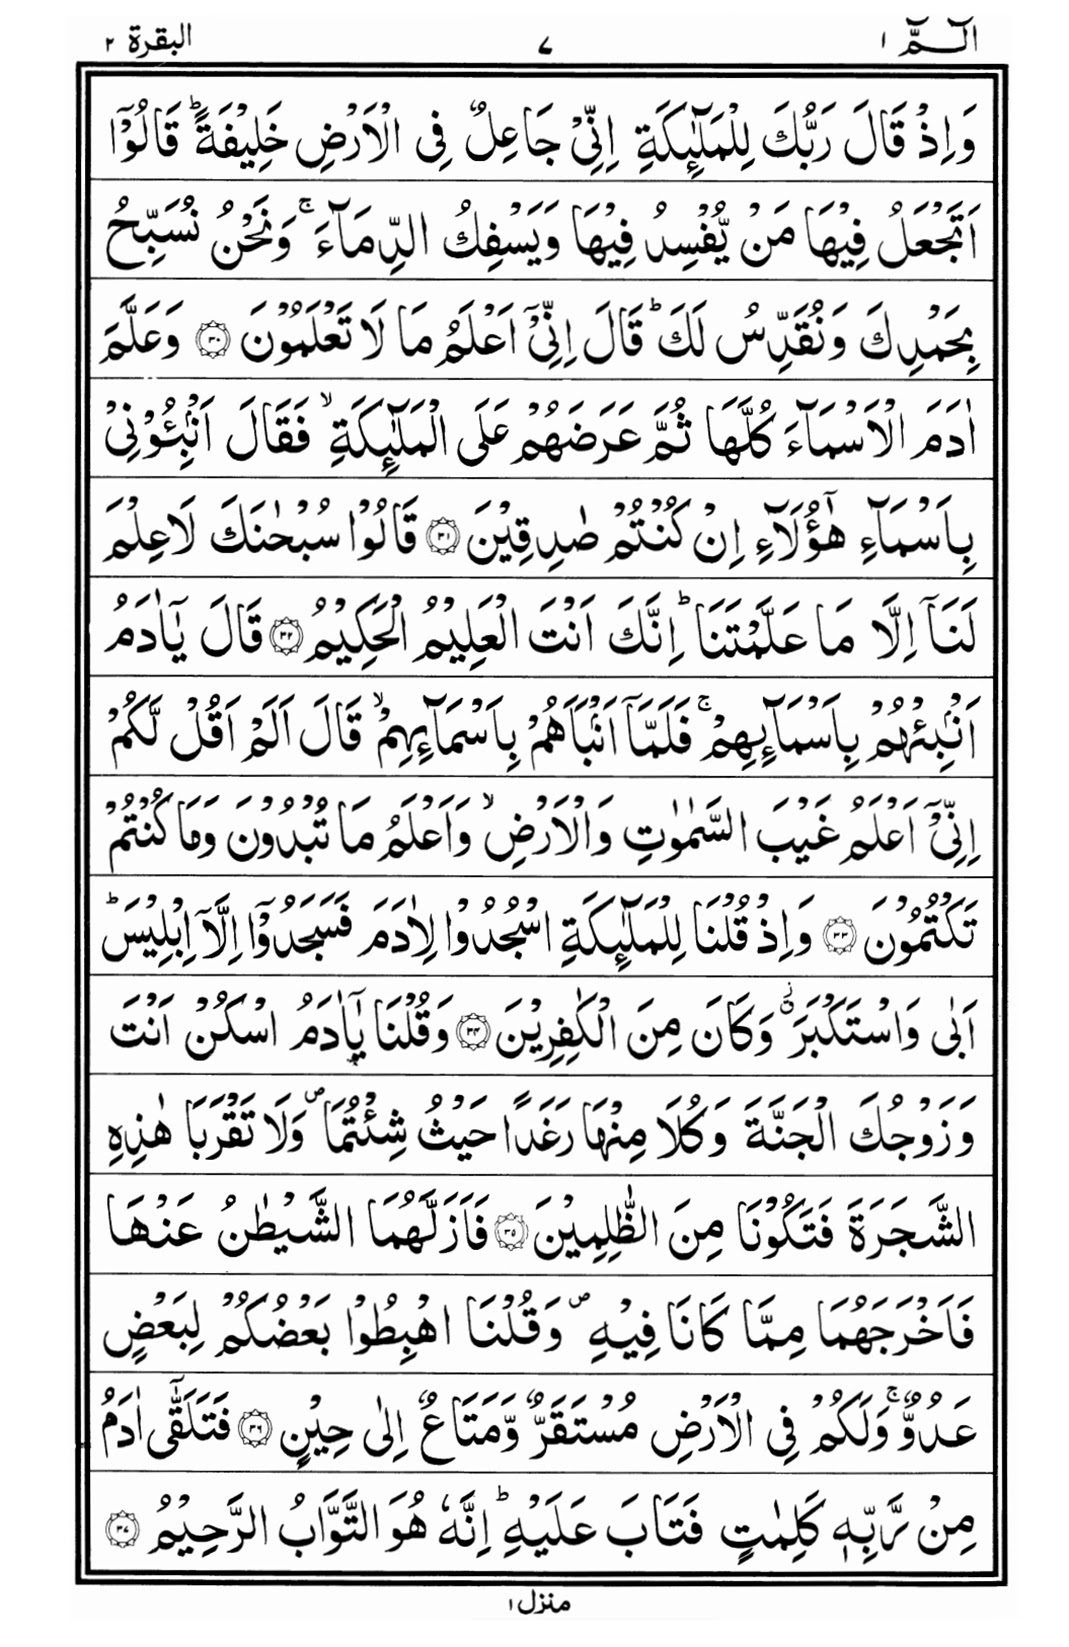 الٓـمّٓ ١
٧
البقرة ٢
وَاِذْ قَالَ رَبُّكَ لِلْمَلٰٓئِكَةِ اِنِّیْ جَاعِلٌ فِی الْاَرْضِ خَلِیْفَةًؕ قَالُوْۤا
اَتَجْعَلُ فِیْهَا مَنْ یُّفْسِدُ فِیْهَا وَیَسْفِكُ الدِّمَآءَۚ وَنَحْنُ نُسَبِّحُ
بِحَمْدِكَ وَنُقَدِّسُ لَكَؕ قَالَ اِنِّیْۤ اَعْلَمُ مَا لَا تَعْلَمُوْنَ ۝٣٠ وَعَلَّمَ
اٰدَمَ الْاَسْمَآءَ كُلَّهَا ثُمَّ عَرَضَهُمْ عَلَی الْمَلٰٓئِكَةِۙ فَقَالَ اَنْۢبِـُٔوْنِیْ
بِاَسْمَآءِ هٰۤؤُلَآءِ اِنْ كُنْتُمْ صٰدِقِیْنَ ۝٣١ قَالُوْا سُبْحٰنَكَ لَاعِلْمَ
لَنَاۤ اِلَّا مَا عَلَّمْتَنَاؕ اِنَّكَ اَنْتَ الْعَلِیْمُ الْحَكِیْمُ ۝٣٢ قَالَ یٰۤاٰدَمُ
اَنْۢبِئْهُمْ بِاَسْمَآئِهِمْۚ فَلَمَّاۤ اَنْۢبَاَهُمْ بِاَسْمَآئِهِمْۙ قَالَ اَلَمْ اَقُلْ لَّكُمْ
اِنِّیْۤ اَعْلَمُ غَیْبَ السَّمٰوٰتِ وَالْاَرْضِۙ وَاَعْلَمُ مَا تُبْدُوْنَ وَمَا كُنْتُمْ
تَكْتُمُوْنَ ۝٣٣ وَاِذْ قُلْنَا لِلْمَلٰٓئِكَةِ اسْجُدُوْا لِاٰدَمَ فَسَجَدُوْۤا اِلَّاۤ اِبْلِیْسَؕ
اَبٰی وَاسْتَكْبَرَ٘ۗ وَكَانَ مِنَ الْكٰفِرِیْنَ ۝٣٤ وَقُلْنَا یٰۤاٰدَمُ اسْكُنْ اَنْتَ
وَزَوْجُكَ الْجَنَّةَ وَكُلَا مِنْهَا رَغَدًا حَیْثُ شِئْتُمَا۪ وَلَا تَقْرَبَا هٰذِهِ
الشَّجَرَةَ فَتَكُوْنَا مِنَ الظّٰلِمِیْنَ ۝٣٥ فَاَزَلَّهُمَا الشَّیْطٰنُ عَنْهَا
فَاَخْرَجَهُمَا مِمَّا كَانَا فِیْهِ۪ وَقُلْنَا اهْبِطُوْا بَعْضُكُمْ لِبَعْضٍ
عَدُوٌّۚ وَلَكُمْ فِی الْاَرْضِ مُسْتَقَرٌّ وَّمَتَاعٌ اِلٰی حِیْنٍ ۝٣٦ فَتَلَقّٰۤی اٰدَمُ
مِنْ رَّبِّهٖ كَلِمٰتٍ فَتَابَ عَلَیْهِؕ اِنَّهٗ هُوَ التَّوَّابُ الرَّحِیْمُ ۝٣٧
منزل ١